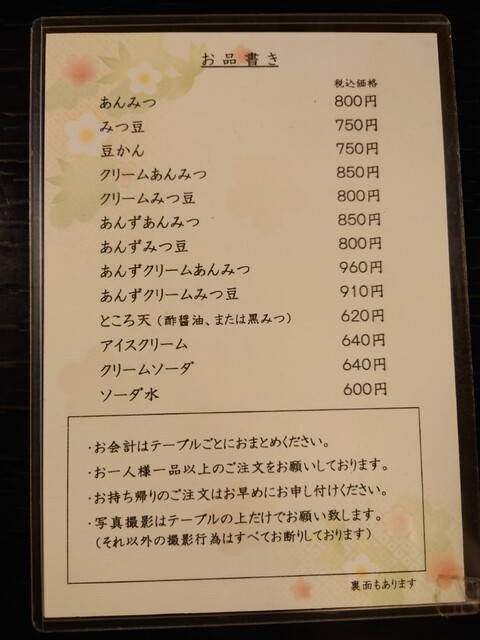 お品書き
税込価格
あんみつ 800円
みつ豆 750円
豆かん 750円
クリームあんみつ 850円
クリームみつ豆 800円
あんずあんみつ 850円
あんずみつ豆 800円
あんずクリームあんみつ 960円
あんずクリームみつ豆 910円
ところ天（酢醤油、または黒みつ） 620円
アイスクリーム 640円
クリームソーダ 640円
ソーダ水 600円
・お会計はテーブルごとにおまとめください。
・お一人様一品以上のご注文をお願いしております。
・お持ち帰りのご注文はお早めにお申し付けください。
・写真撮影はテーブルの上だけでお願い致します。
（それ以外の撮影行為はすべてお断りしております）
裏面もあります